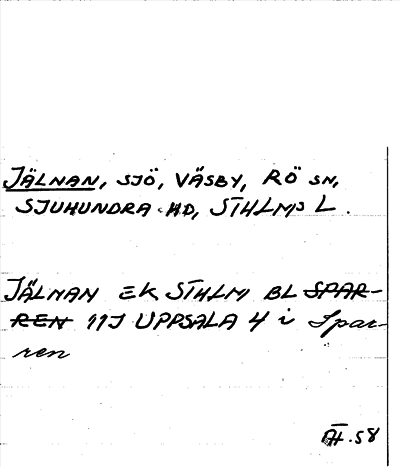 JÄLNAN, SJÖ, VÄSBY, RÖ SN,
SJUHUNDRA HD, STHLMS L.
JÄLNAN EK STHLM BL SPAR-
REN 11J UPPSALA 4 i Spar-
ren
ÅH.58